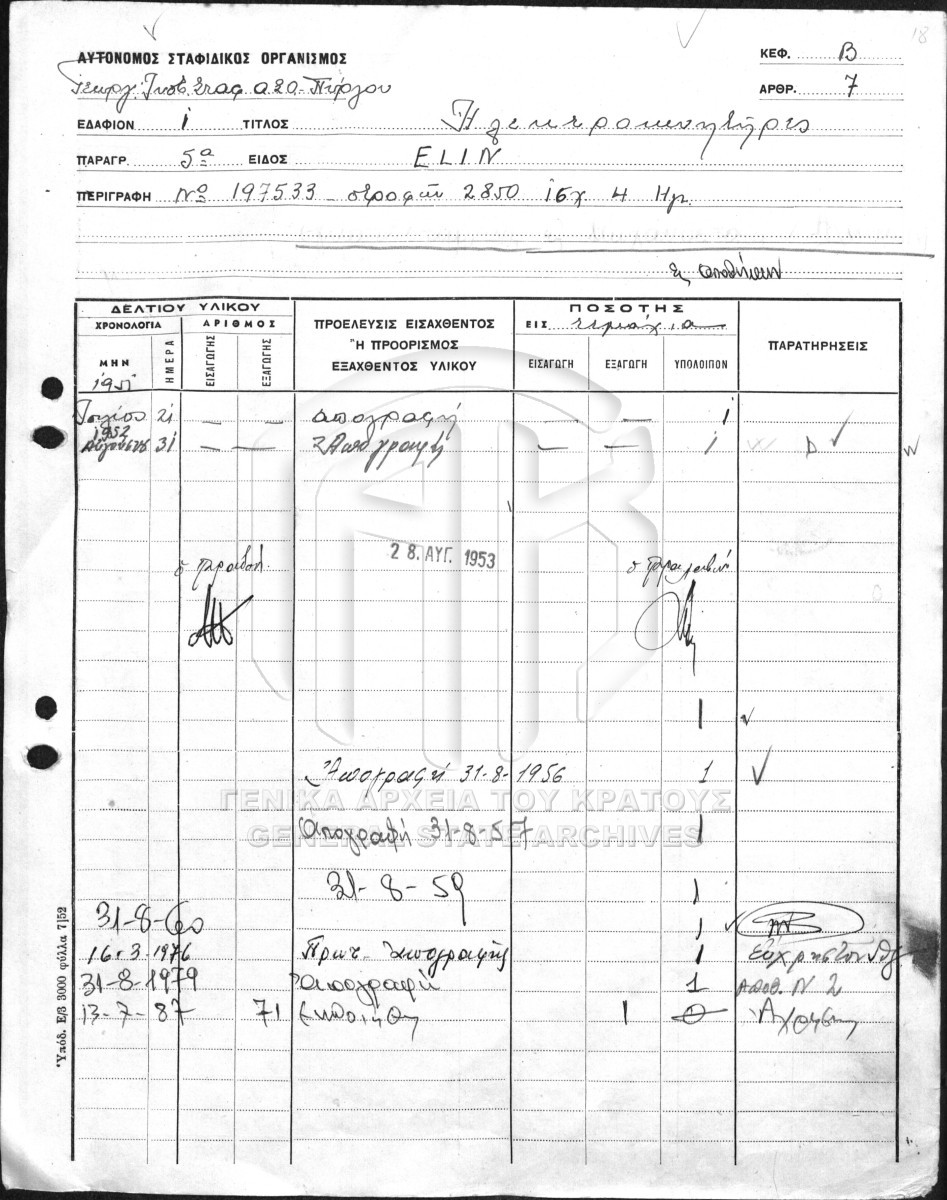 18
ΑΥΤΟΝΟΜΟΣ ΣΤΑΦΙΔΙΚΟΣ ΟΡΓΑΝΙΣΜΟΣ
ΚΕΦ. Β
Γεωργ. Ινστ. Σταφ. Α.Σ.Ο. Πύργου
ΑΡΘΡ. 7
ΕΔΑΦΙΟΝ 1 ΤΙΤΛΟΣ Ηλεκτροκινητήρες
ΠΑΡΑΓΡ. 5α ΕΙΔΟΣ ELIN
ΠΕΡΙΓΡΑΦΗ Νο 197533 στροφών 2850 ισχ 4 Ηρ.
αποθήκην
ΔΕΛΤΙΟΥ ΥΛΙΚΟΥ
ΧΡΟΝΟΛΟΓΙΑ
ΜΗΝ
1951
ΗΜΕΡΑ
ΑΡΙΘΜΟΣ
ΕΙΣΑΓΩΓΗΣ
ΕΞΑΓΩΓΗΣ
ΠΡΟΕΛΕΥΣΙΣ ΕΙΣΑΧΘΕΝΤΟΣ
Ἢ ΠΡΟΟΡΙΣΜΟΣ
ΕΞΑΧΘΕΝΤΟΣ ΥΛΙΚΟΥ
ΠΟΣΟΤΗΣ
ΕΙΣ τεμάχια
ΕΙΣΑΓΩΓΗ
ΕΞΑΓΩΓΗ
ΥΠΟΛΟΙΠΟΝ
ΠΑΡΑΤΗΡΗΣΕΙΣ
21 — — απογραφή — — 1
1952
Αύγουστος 31 — — Απογραφή — — 1
28. ΑΥΓ. 1953
ο παραδούς
ο παραλαβών
1
Απογραφή 31-8-1956 1
ΓΕΝΙΚΑ ΑΡΧΕΙΑ ΤΟΥ ΚΡΑΤΟΥΣ
GENERAL STATE ARCHIVES
Απογραφή 31-8-57 1
31-8-59 1
31-8-60 1
16.3.1976 Πρωτ. Απογραφής 1
31-8-1979 Απογραφή 1 Αποθ. Ν 2
13-7-87 71 Εκποίηση 1 0
Ὑπόδ. Ε/3 3000 φύλλα 7|52